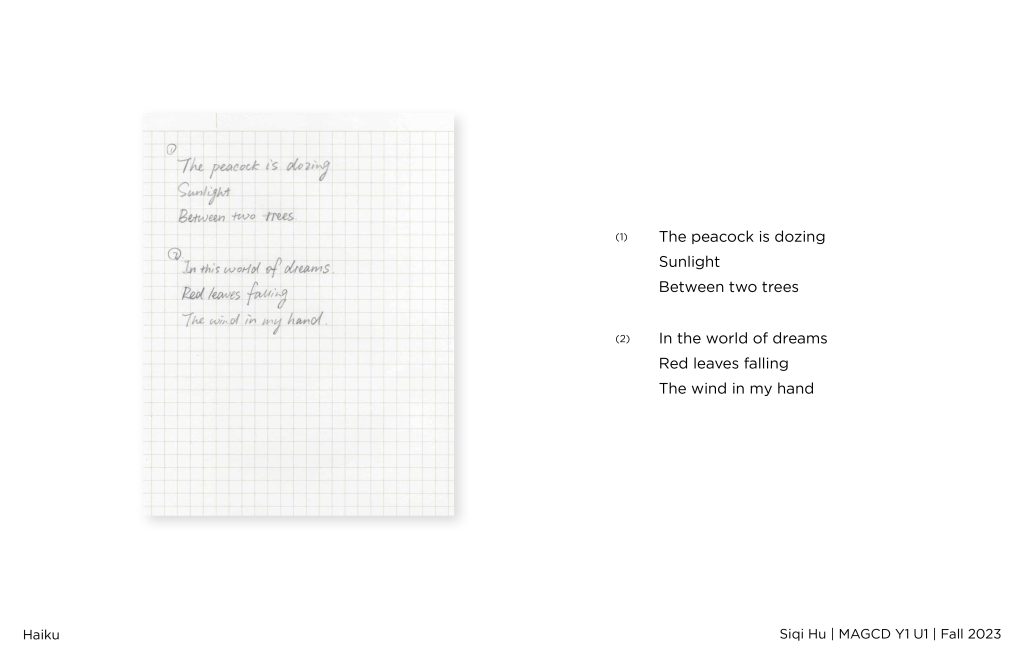 ①
The peacock is dozing
Sunlight
Between two trees.
②
In this world of dreams.
Red leaves falling
The wind in my hand.
(1) The peacock is dozing
Sunlight
Between two trees
(2) In the world of dreams
Red leaves falling
The wind in my hand
Haiku
Siqi Hu | MAGCD Y1 U1 | Fall 2023